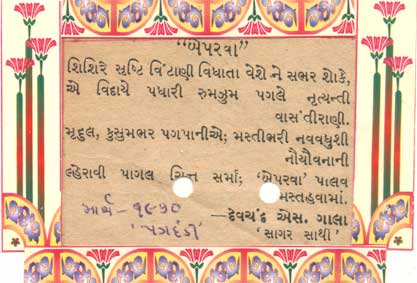 “બેપરવા”
શિશિરે સૃષ્ટિ વિંટાણી વિધાતા વેશે ને સભર શોકે,
એ વિદાયે પધારી રુમઝુમ પગલે નૃત્યન્તી
વાસંતીરાણી.
મૃદુલ, કુસુમભર પગપાનીએ; મસ્તીભરી નવવધુશી
નૌયૌવનાની
લ્હેરાવી પાગલ ચિત્ત સમાં; ‘બેપરવા’ પાલવ
મસ્તહવામાં.
—દેવચંદ એસ. ગાલા
‘સાગર સાથી’
માર્ચ - ૧૯૭૦
‘પગદંડી’